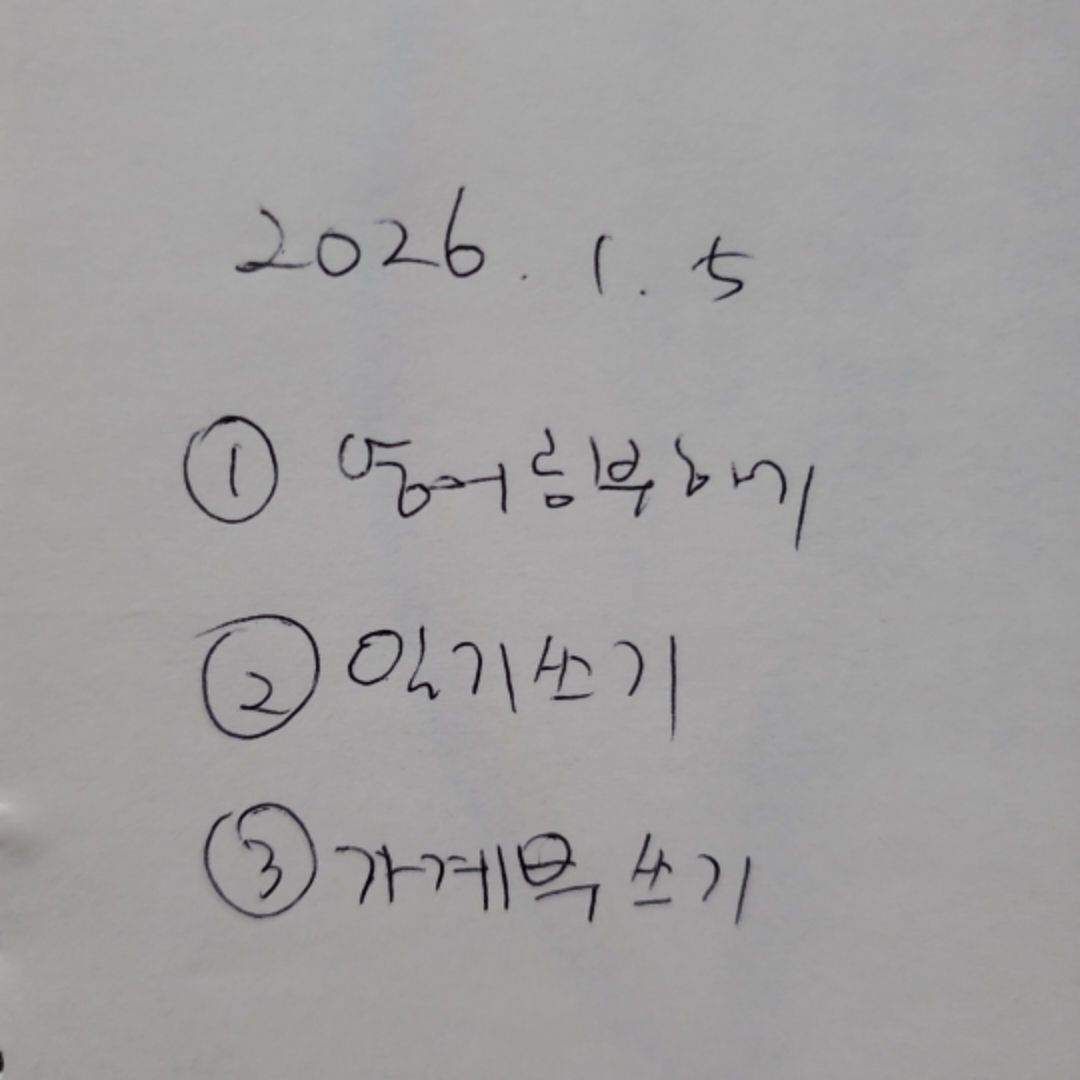 2026. 1. 5
① 영어공부하기
② 일기쓰기
③ 가계부 쓰기